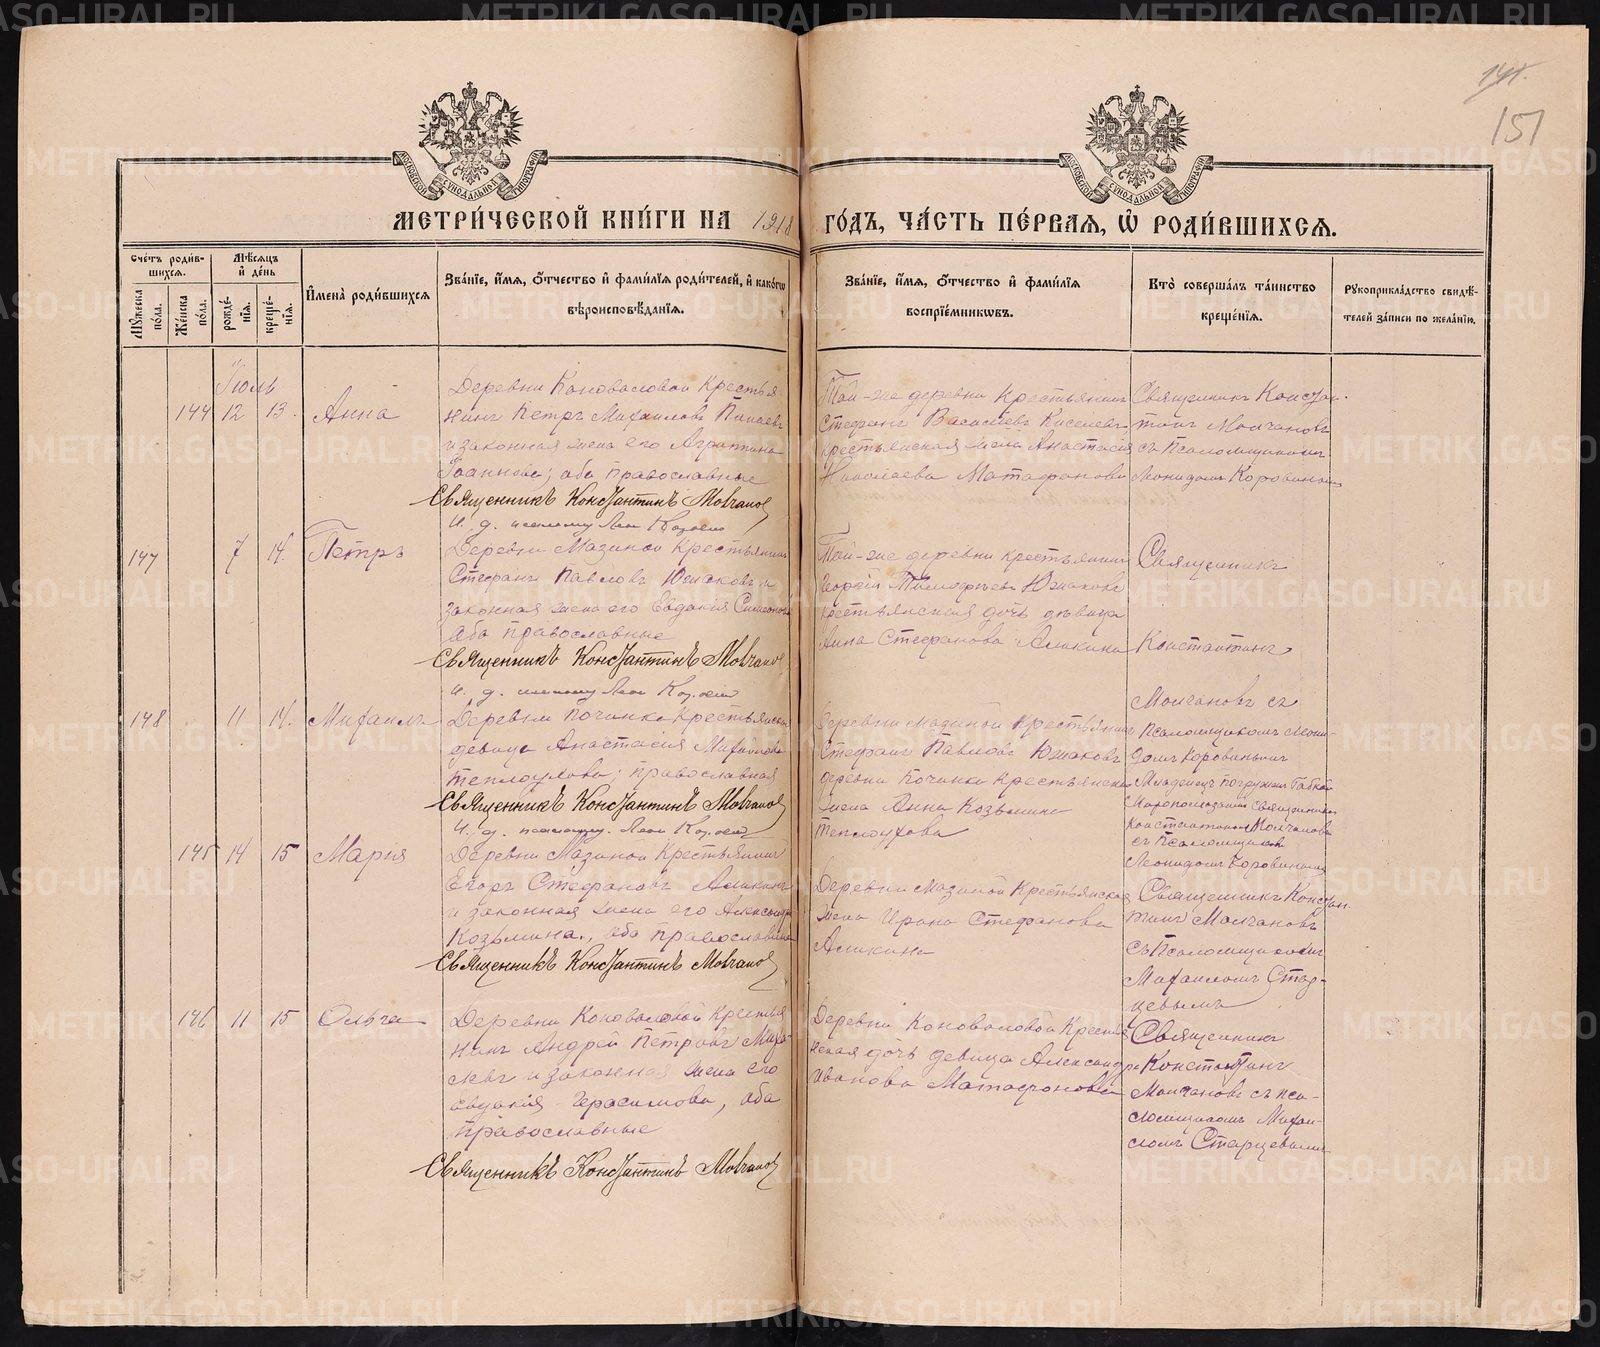 141.
151
МОСКОВСКОЙ СѴНОДАЛЬНОЙ ТИПОГРАФІИ
МОСКОВСКОЙ СѴНОДАЛЬНОЙ ТИПОГРАФІИ
МЕТРИ́ЧЕСКОЙ КНИ́ГИ НА 1918 ГО́ДЪ, ЧА́СТЬ ПЕ́РВАЯ, Ѽ РОДИ́ВШИХСЯ.
Сче́тъ роди́в-
шихся.
Мѣ́сяцъ
и́ де́нь
Му́жеска по́ла.
Же́нска по́ла.
рожде́-
нїя.
креще́-
нїя.
И҆мена̀ роди́вшихся
Зва́нїе, и҆́мя, ѻ҆́тчество и҆ фами́лїя роди́телей, и҆ како́гѡ
вѣроисповѣ́данїя.
Зва́нїе, и҆́мя, ѻ҆́тчество и҆ фами́лїя
воспрїе́мникѡвъ.
Кто̀ соверша́лъ та́инство
креще́нїя.
Рукоприкла́дство свидѣ́-
телей за́писи по жела́нїю.
Іюль
144 12 13. Анна
Деревни Коноваловой Крестья-
нинъ Петръ Михаиловъ Пинаевъ
и законная жена его Агриппина
Іоаннова; оба православные
Священникъ Константинъ Молчанов
Той-же деревни крестьянинъ
Стефанъ Василіевъ Киселевъ
крестьянская жена Анастасія
Николаева Матафонова
Священникъ Констан-
тинъ Молчановъ
съ Псаломщикомъ
Леонидомъ Коровинымъ
147 7 14. Петръ
Деревни Мазиной Крестьянинъ
Стефанъ Павловъ Южаковъ и
законная жена его Евдокія Симеонова
оба православные
Священникъ Константинъ Молчанов
Той-же деревни крестьянинъ
Георгій Тимофеевъ Южаковъ
крестьянская дочь девица
Анна Стефанова Аликина
Священникъ
Константинъ
Молчановъ съ
псаломщикомъ Леони-
домъ Коровинымъ
148 11 14. Михаилъ
Деревни Починка Крестьянская
девица Анастасія Михайлова
Теплоухова; православная
Священникъ Константинъ Молчанов
Деревни Мазиной Крестьянинъ
Стефанъ Павловъ Южаковъ
деревни Починка Крестьянская
жена Анна Козьмина
Теплоухова
Младенецъ погружен бабкой
Миропомазанъ священником
Константиномъ Молчановым
съ Псаломщиком
Леонидомъ Коровинымъ
145 14 15 Марія
Деревни Мазиной Крестьянинъ
Егоръ Стефановъ Аликинъ
и законная жена его Александра
Козьмина, оба православные
Священникъ Константинъ Молчанов
Деревни Мазиной Крестьянская
жена Ирина Стефанова
Аликина
Священникъ Констан-
тинъ Молчановъ
съ Псаломщикомъ
Михаиломъ Стар-
цевымъ
146 11 15 Ольга
Деревни Коноваловой Крестья-
нинъ Андрей Петровъ
и законная жена его
Евдокія Герасимова, оба
православные
Священникъ Константинъ Молчанов
Деревни Коноваловой Крестья-
нская дочь девица Александра
Иванова Матафонова
Священникъ
Константинъ
Молчановъ съ пса-
ломщикомъ Михаи-
ломъ Старцевымъ
METRIKI.GASO-URAL.RU